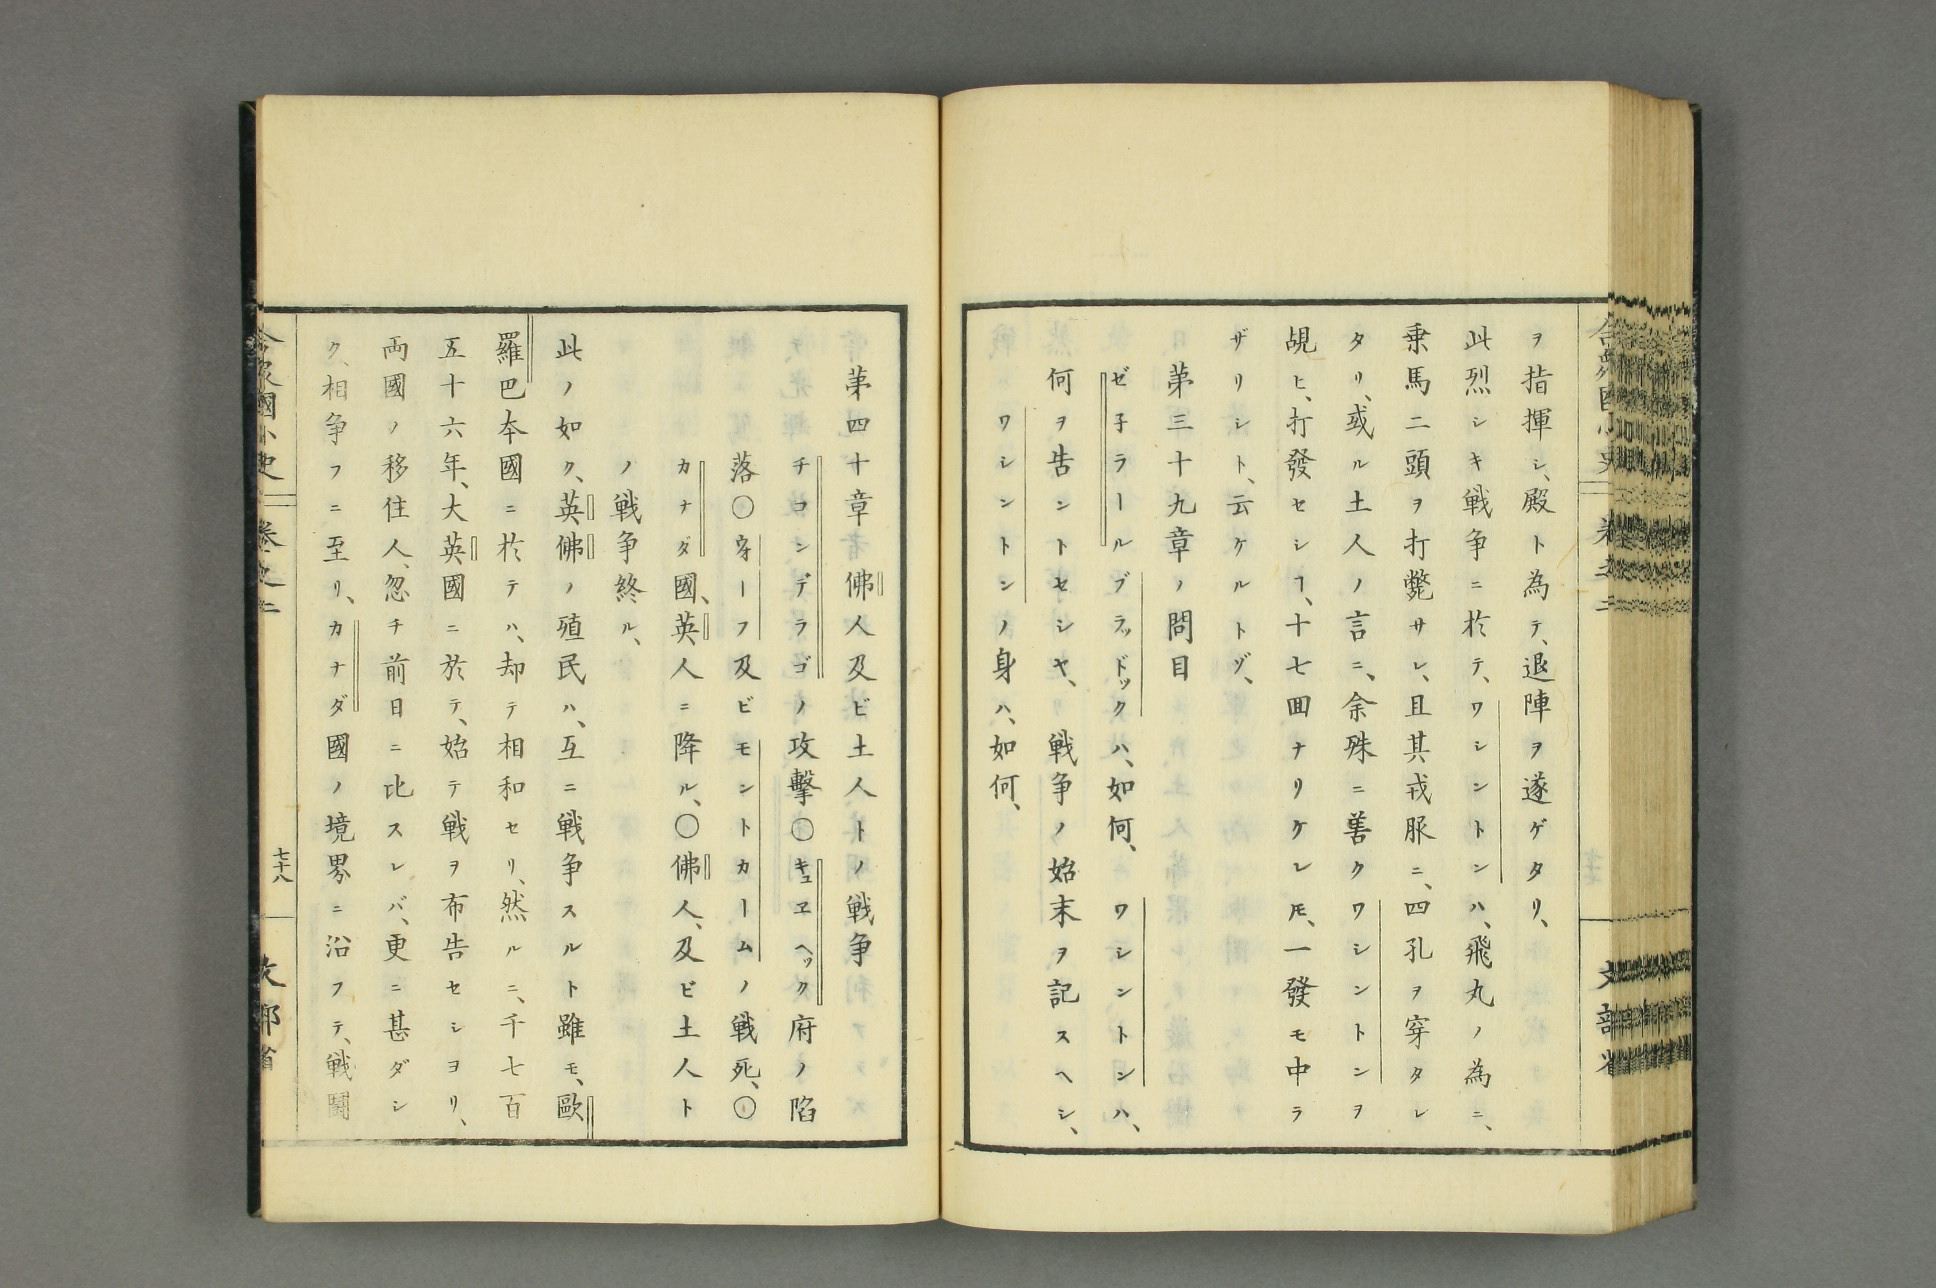 ヲ指揮シ、殿ト為テ、退陣ヲ遂ゲタリ、
此烈シキ戦争ニ於テ、ワシントンハ、飛丸ノ為ニ、
乗馬二頭ヲ打斃サレ、且其戎服ニ、四孔ヲ穿タレ
タリ、或ル土人ノ言ニ、余殊ニ善クワシントンヲ
覘ヒ、打發セシヿ、十七囬ナリケレ𪜈、一發モ中ラ
ザリシト、云ケルトゾ、
第三十九章ノ問目
ゼ子ラールブラッドックハ、如何、ワシントンハ、
何ヲ告ントセシヤ、戦争ノ始末ヲ記スヘシ、
ワシントンノ身ハ、如何、
文部省
第四十章佛人及ビ土人トノ戦争
チコンデラゴノ攻擊〇キュヱヘック府ノ陷
落〇ヲーフ及ビモントカームノ戦死、〇
カナダ國、英人ニ降ル、〇佛人、及ビ土人ト
ノ戦争終ル、
此ノ如ク、英佛ノ殖民ハ、互ニ戦争スルト雖モ、歐
羅巴本國ニ於テハ、却テ相和セリ、然ルニ、千七百
五十六年、大英國ニ於テ、始テ戦ヲ布告セシヨリ、
両國ノ移住人、忽チ前日ニ比スレバ、更ニ甚ダシ
ク、相争フニ至リ、カナダ國ノ境界ニ沿フテ、戦鬪
合衆國小史 卷之二 七十八 文部省